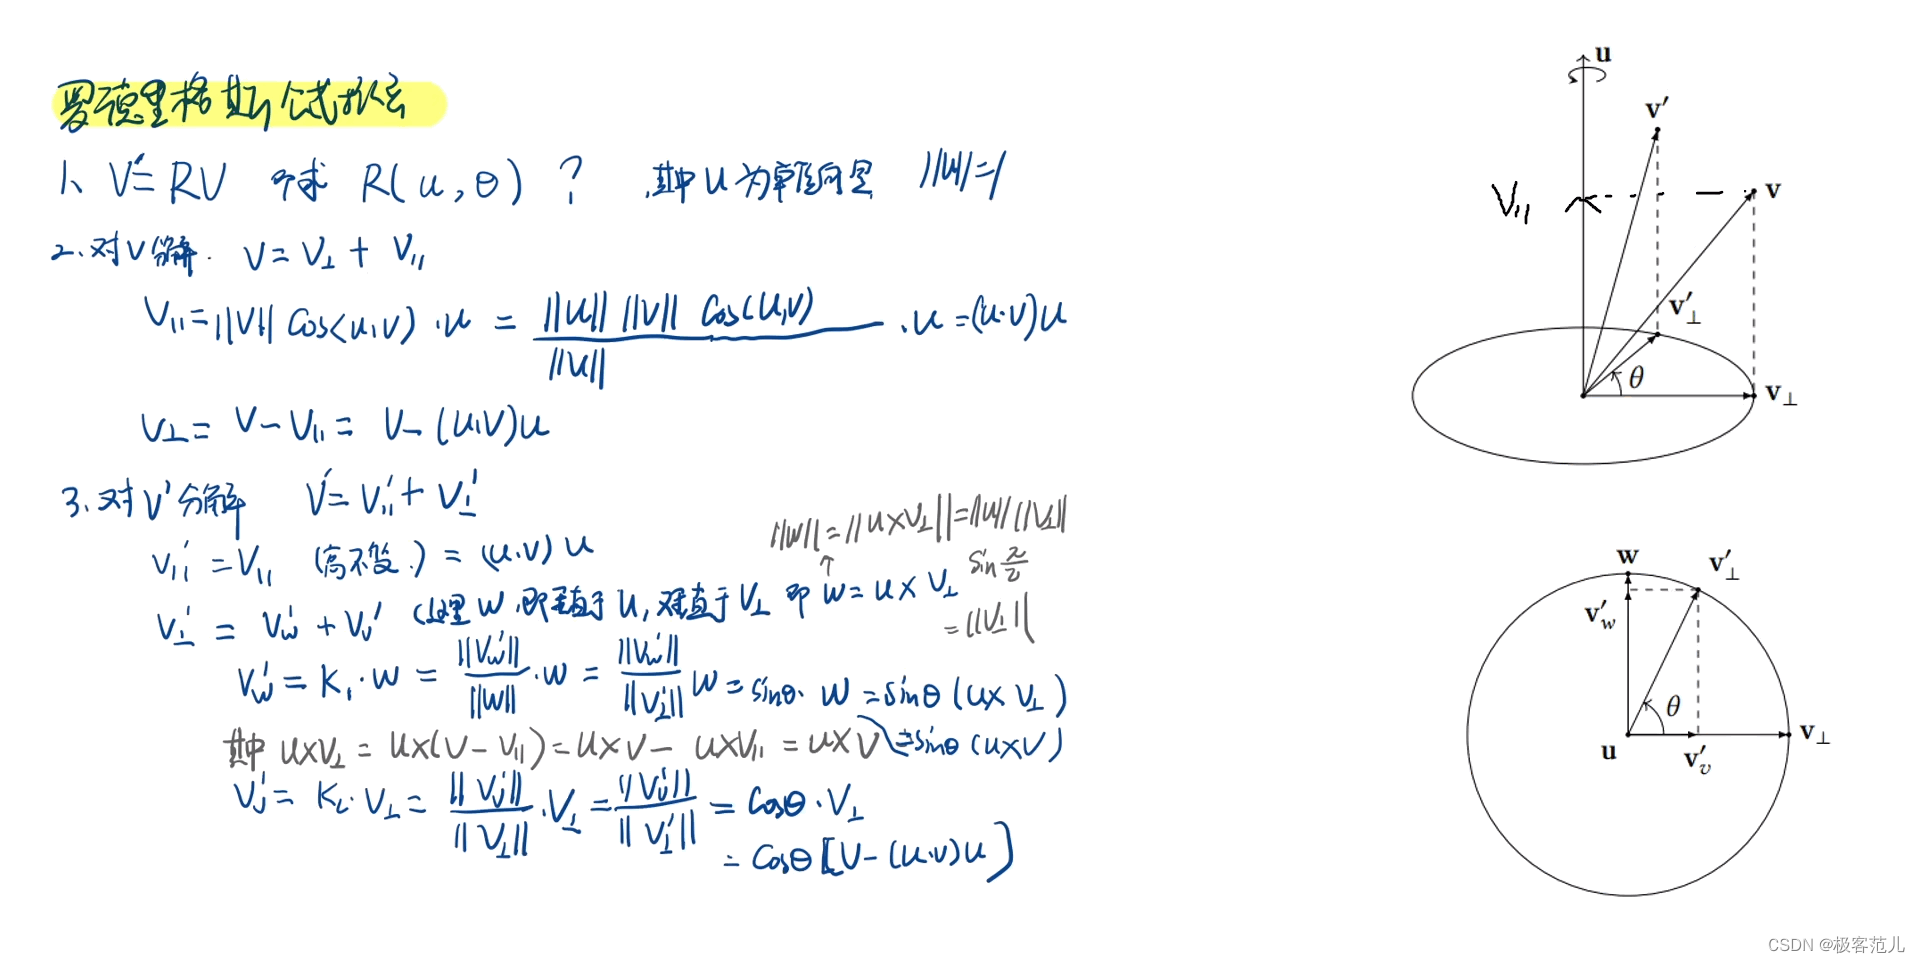 罗德里格斯公式推导
1、V′=RV 即求 R(u,θ) ? ,其中 u 为单位向量 ||u||=1
2.对V分解. V=V⊥ + V∥
V∥=||V|| Cos(u,v) ·u = ||u|| ||v|| Cos(u,v) / ||u|| ·u =(u·v)u
V⊥= V-V∥= V-(u,v)u
3.对V′分解 V′=V∥′+V⊥′
||w||=||u×V⊥||=||u|| ||V⊥||
sin π/2
=||V⊥||
V∥′=V∥ (高不变.) = (u·v) u
V⊥′ = Vw′ + Vv′ (这里 w,即垂直于 u, 垂直于 V⊥ 即 w=u×V⊥
Vw′ = K₁·w = ||Vw′|| / ||w|| ·w = ||Vw′|| / ||V⊥′|| w =sinθ· w =sinθ (u× V⊥)
其中 u×V⊥ = u×(V-V∥)=u×V- u×V∥ =u×V =sinθ (u×V)
Vv′= K₂·V⊥= ||Vv′|| / ||V⊥|| ·V⊥ = ||Vv′|| / ||V⊥′|| = Cosθ·V⊥
= Cosθ[V-(u·v)u]
u
v′
V∥
v
v′⊥
θ
v⊥
w
v′⊥
v′w
θ
u
v′v
v⊥
CSDN @极客范儿